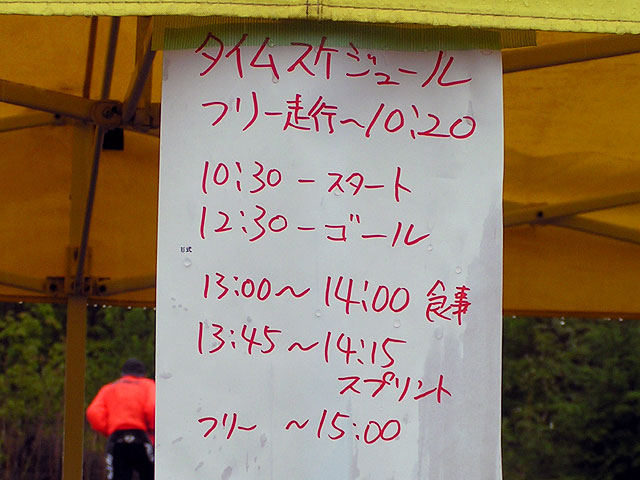 タイムスケジュール
フリー走行〜10:20
10:30ースタート
12:30ーゴール
13:00〜14:00 食事
13:45〜14:15
スプリント
フリー 〜15:00